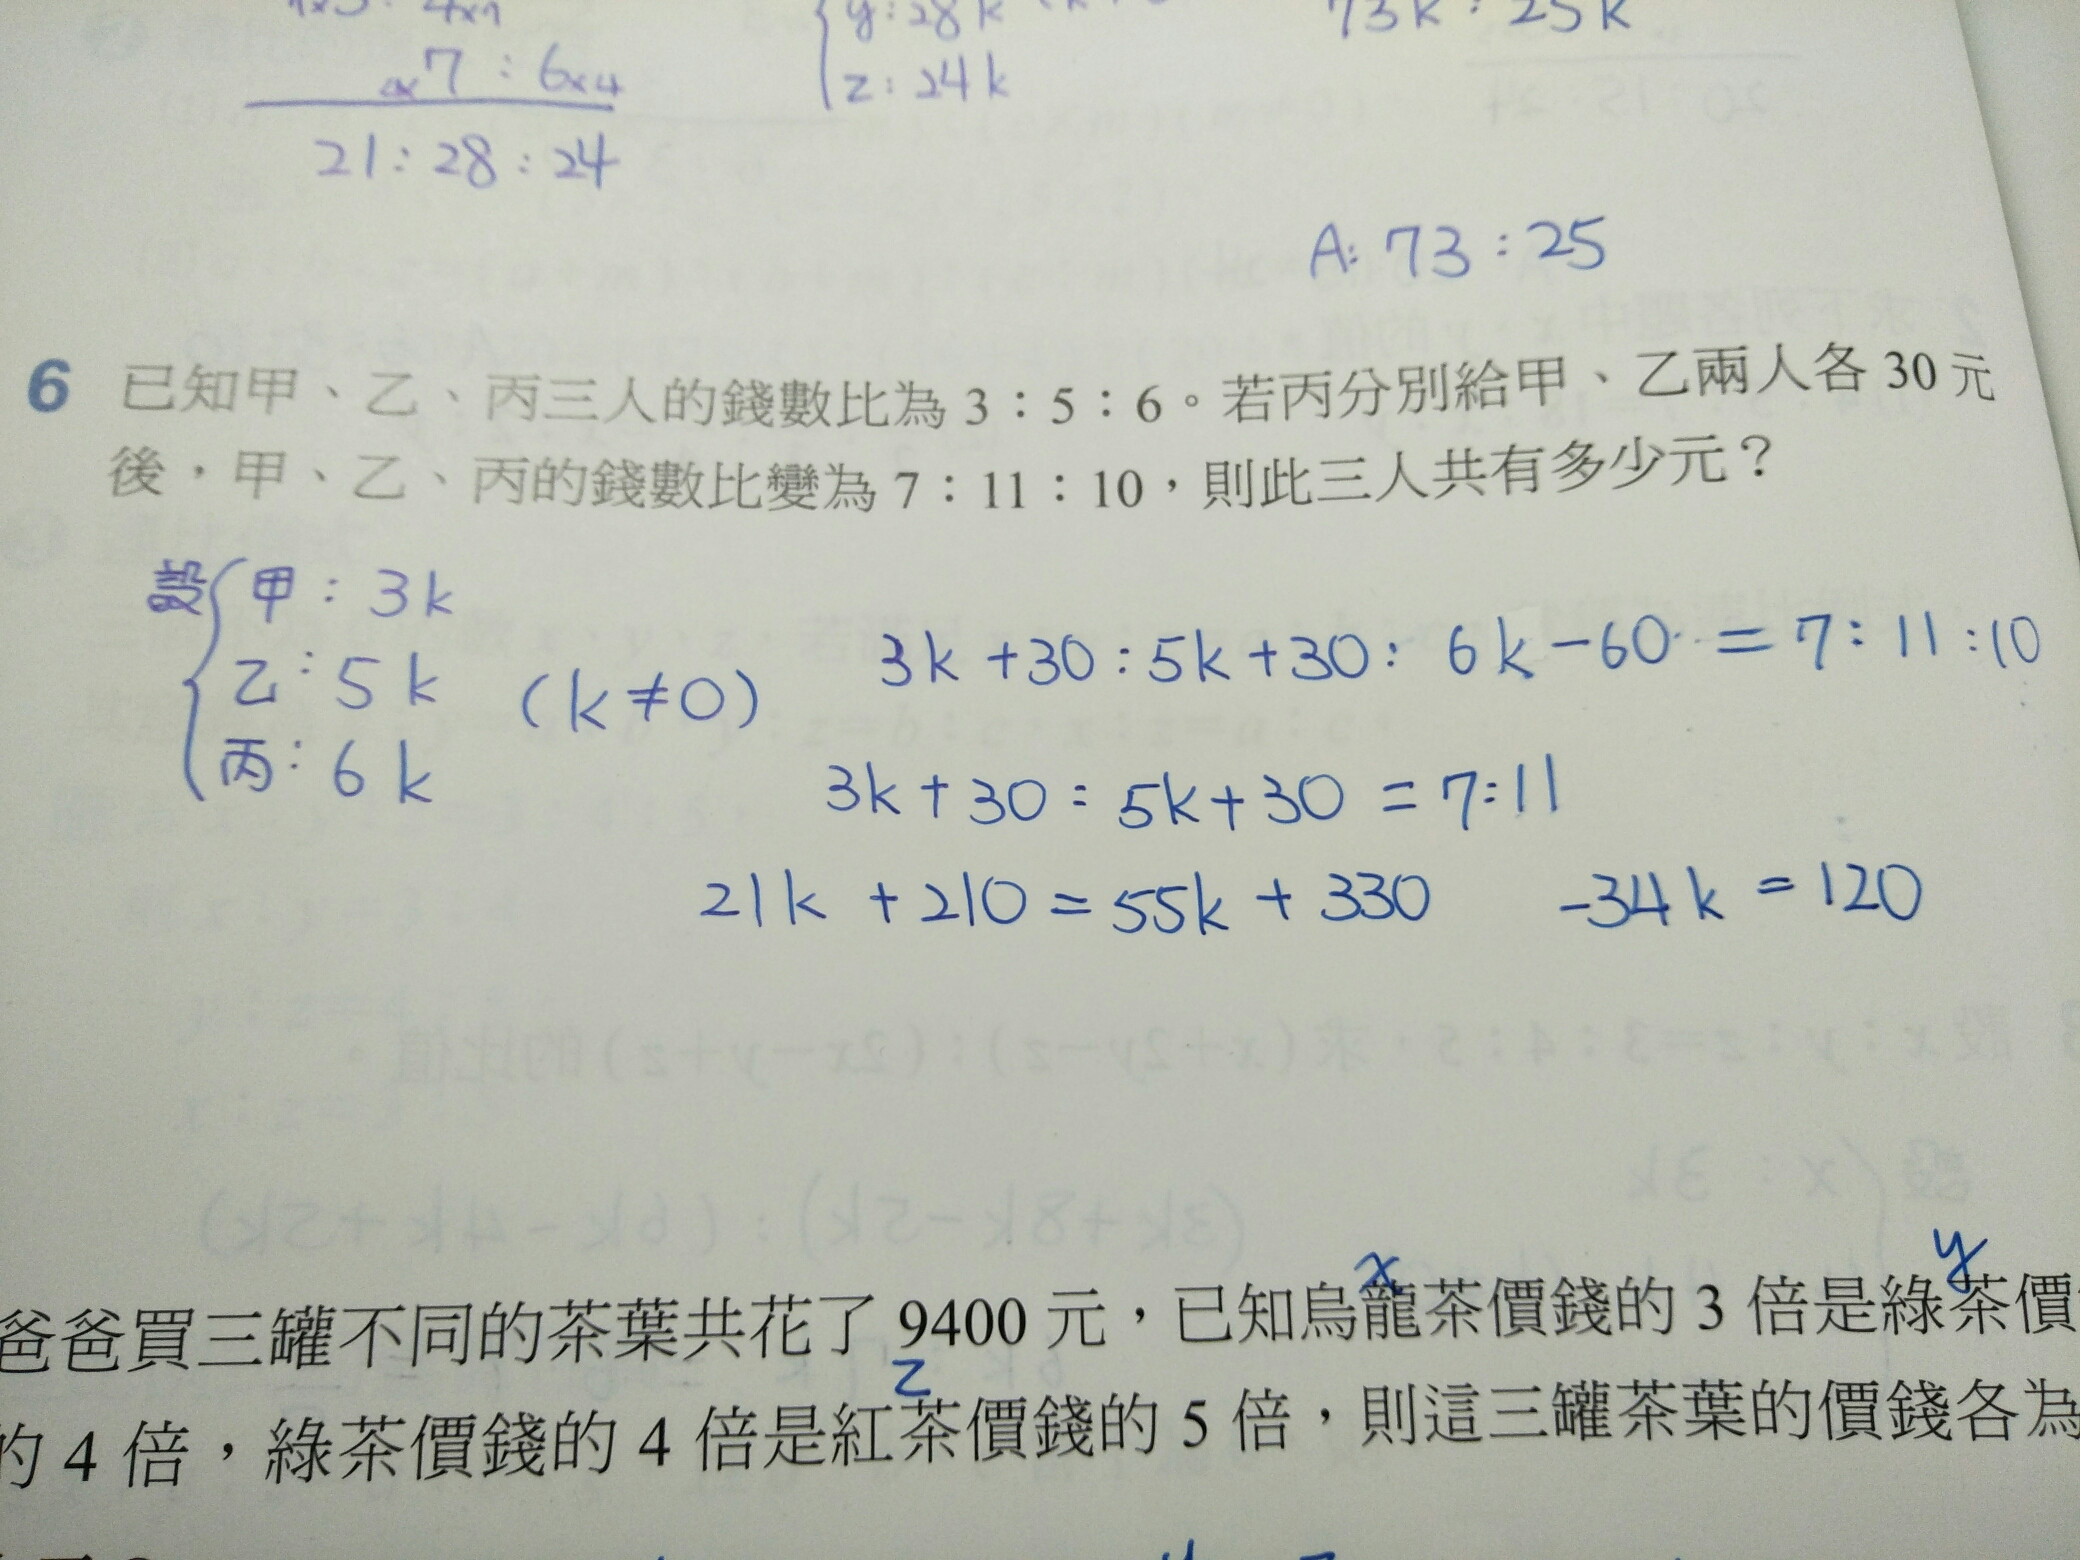 y : 28k
73k : 25k
7 : 6x4
z : 24k
21 : 28 : 24
A: 73 : 25
6 已知甲、乙、丙三人的錢數比為 3：5：6。若丙分別給甲、乙兩人各 30 元
後，甲、乙、丙的錢數比變為 7：11：10，則此三人共有多少元？
設 甲 : 3k
乙 : 5k (k≠0)
丙 : 6k
3k+30 : 5k+30 : 6k-60 = 7 : 11 : 10
3k+30 : 5k+30 = 7:11
21k+210 = 55k+330 -34k = 120
x y
爸爸買三罐不同的茶葉共花了 9400 元，已知烏龍茶價錢的 3 倍是綠茶價
z
的 4 倍，綠茶價錢的 4 倍是紅茶價錢的 5 倍，則這三罐茶葉的價錢各為